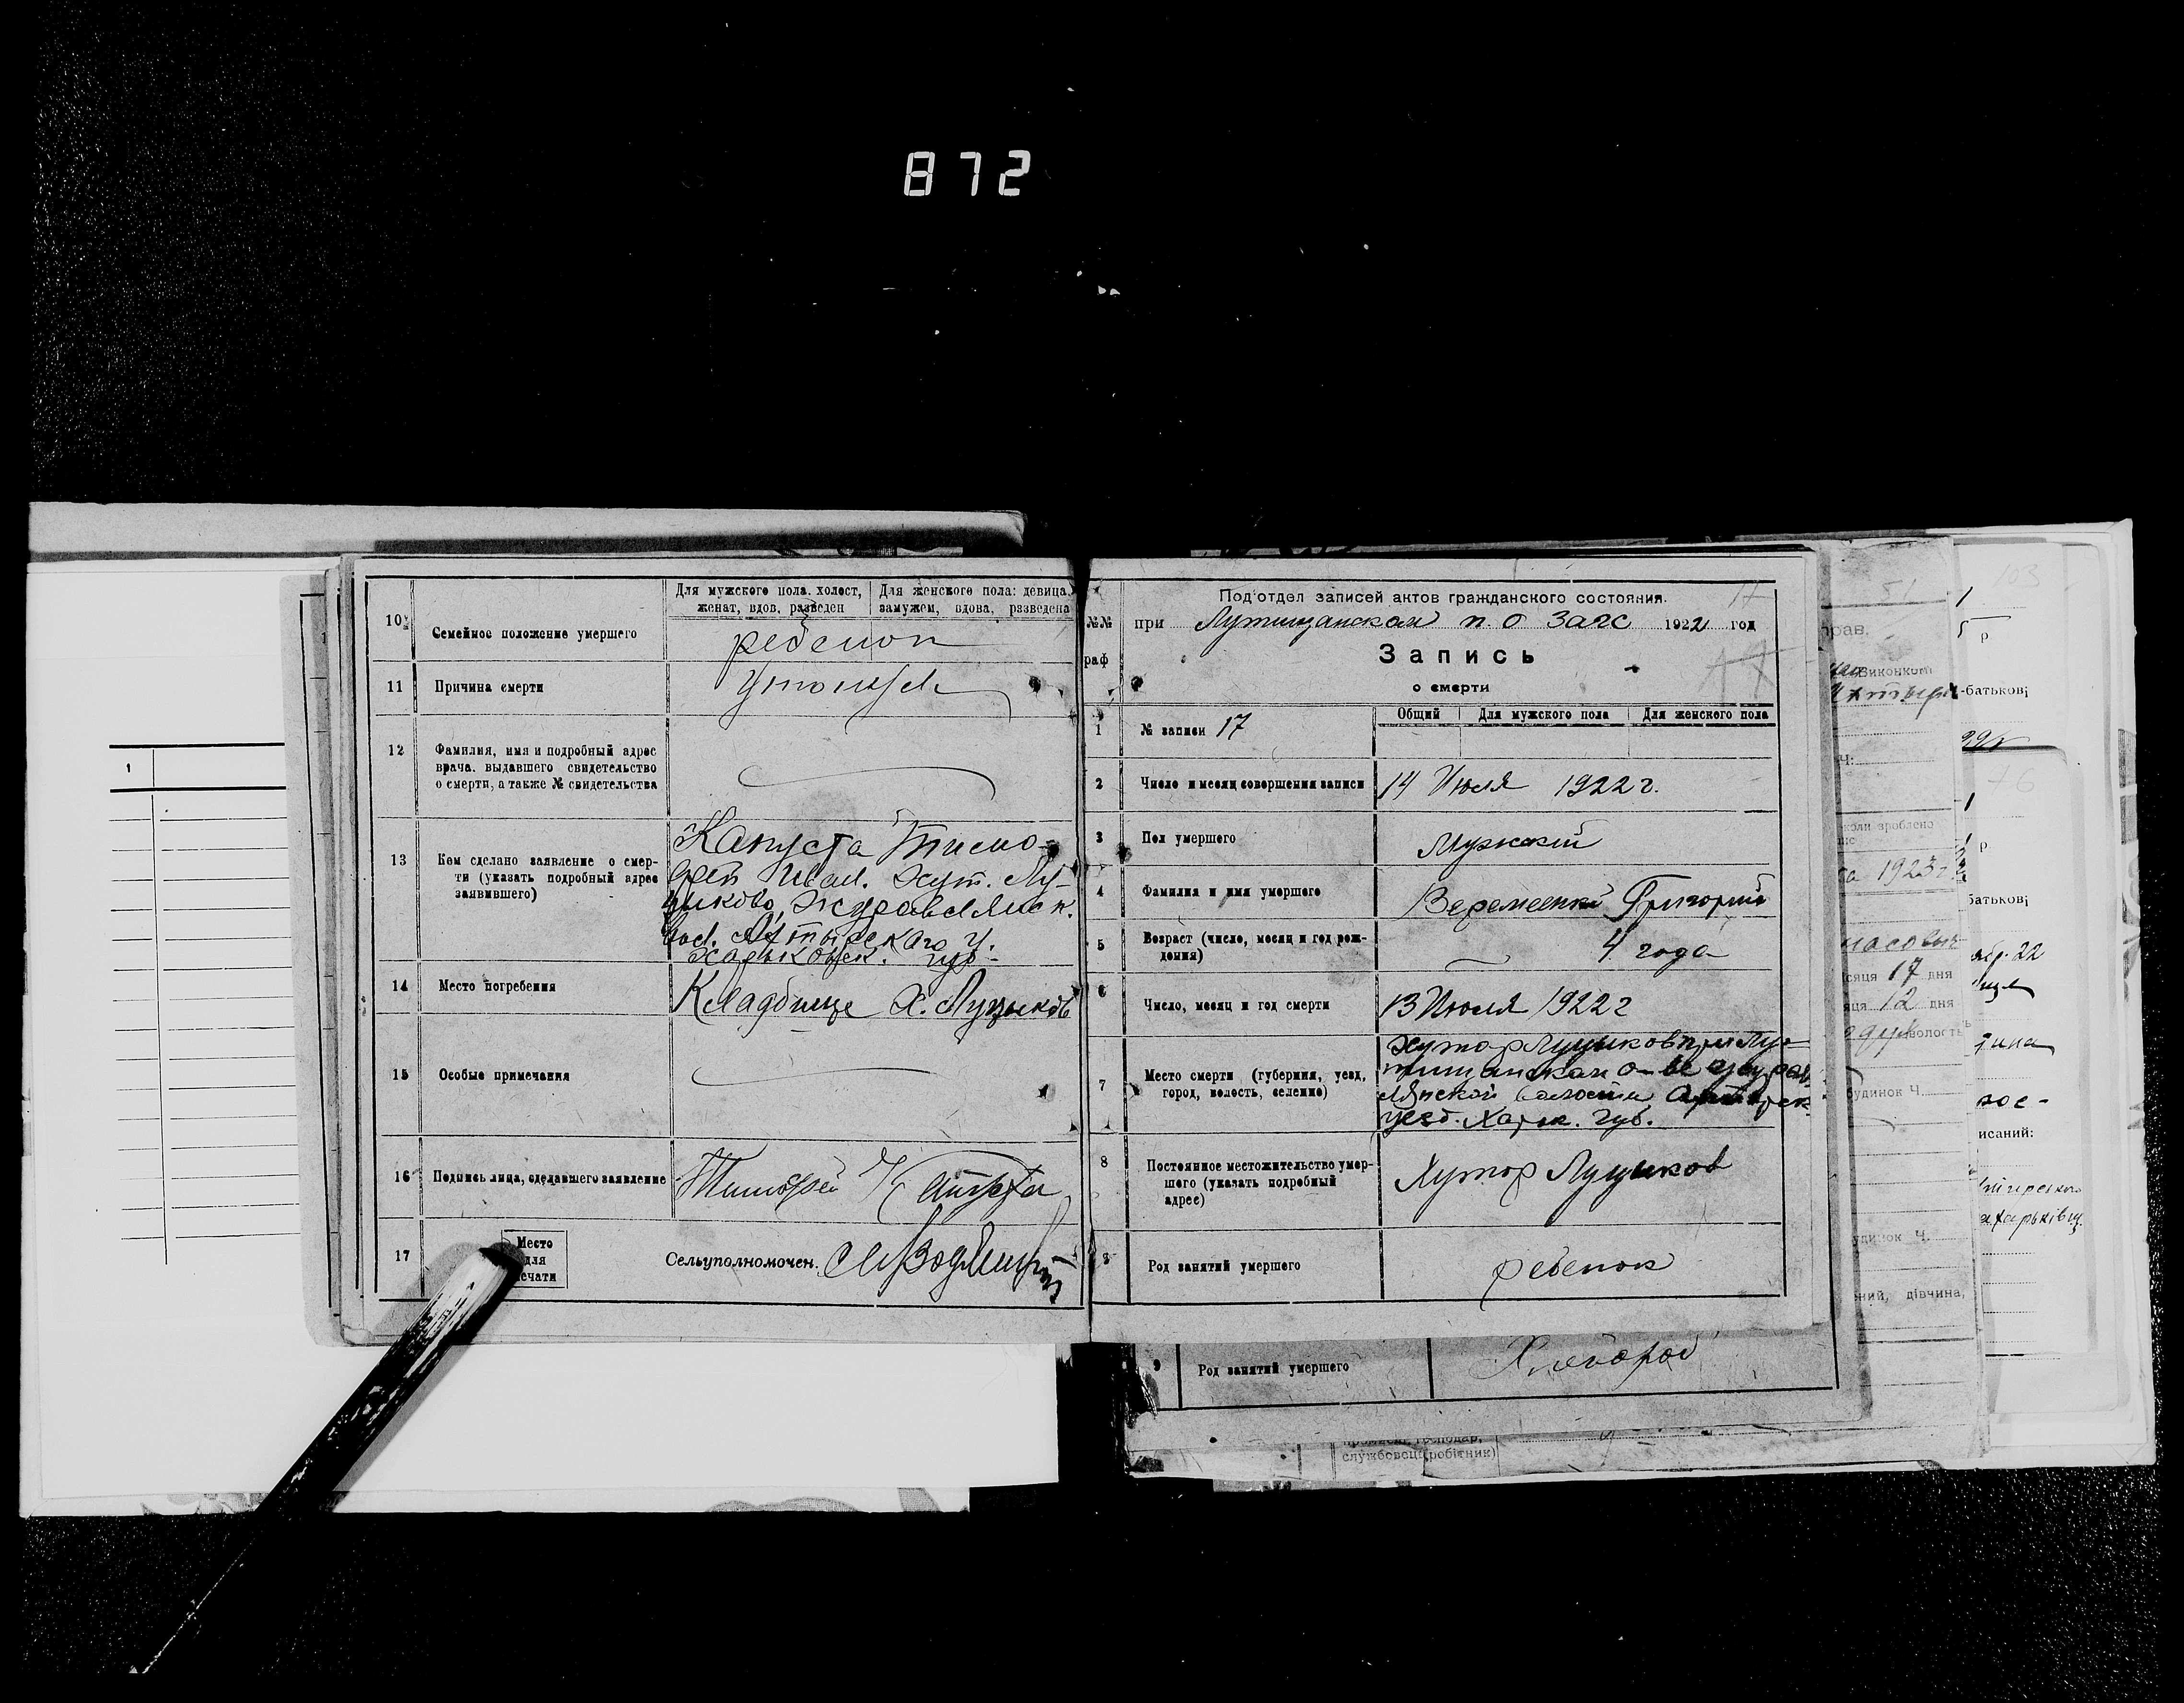 872
10
Семейное положение умершего
Для мужского пола. холост, женат, вдов, разведен
Для женского пола: девица, замужем, вдова, разведена
ребенок
11
Причина смерти
Утонул
12
Фамилия, имя и подробный адрес
врача, выдавшего свидетельство
о смерти, а также № свидетельства
13
Кем сделано заявление о смер-
ти (указать подробный адрес
заявившего)
Капуста Тимо-
фей Иван. Хут. Лу-
циково, Журавлянск.
вол. Ахтырскаго у.
Харьковск. губ.
14
Место погребения
Кладбище Х. Луциков
15
Особые примечания
16
Подпись лица, сделавшего заявление
Тимофей Капуста
17
Место
для
печати
Сельуполномочен.
№№
граф
Под'отдел записей актов гражданского состояния.
17
при Лутищанском п. о Загс 1922 год
Запись
о смерти
Общий
Для мужского пола
Для женского пола
1
№ записи 17
2
Число и месяц совершения записи
14 Июля 1922 г.
3
Пол умершего
Мужской
4
Фамилия и имя умершего
Веремеенко Григорий
5
Возраст (число, месяц и год рож-
дения)
4 года
6
Число, месяц и год смерти
13 Июля 1922 г
7
Место смерти (губерния, уезд,
город, волость, селение)
Хутор Луциков при Лу-
тищанском о-ве Журав
лянской волости Ахтырск
уезд. Харьк. губ.
8
Постоянное местожительство умер-
шего (указать подробный
адрес)
Хутор Луциков
Род занятий умершего
ребенок
9
Род занятий умершего
Хлебороб
службовець, робітник)
1
51
103
-батькові
1923 г.
17 дня
12 дня
волость
будинок Ч.
исаний:
дівчина,